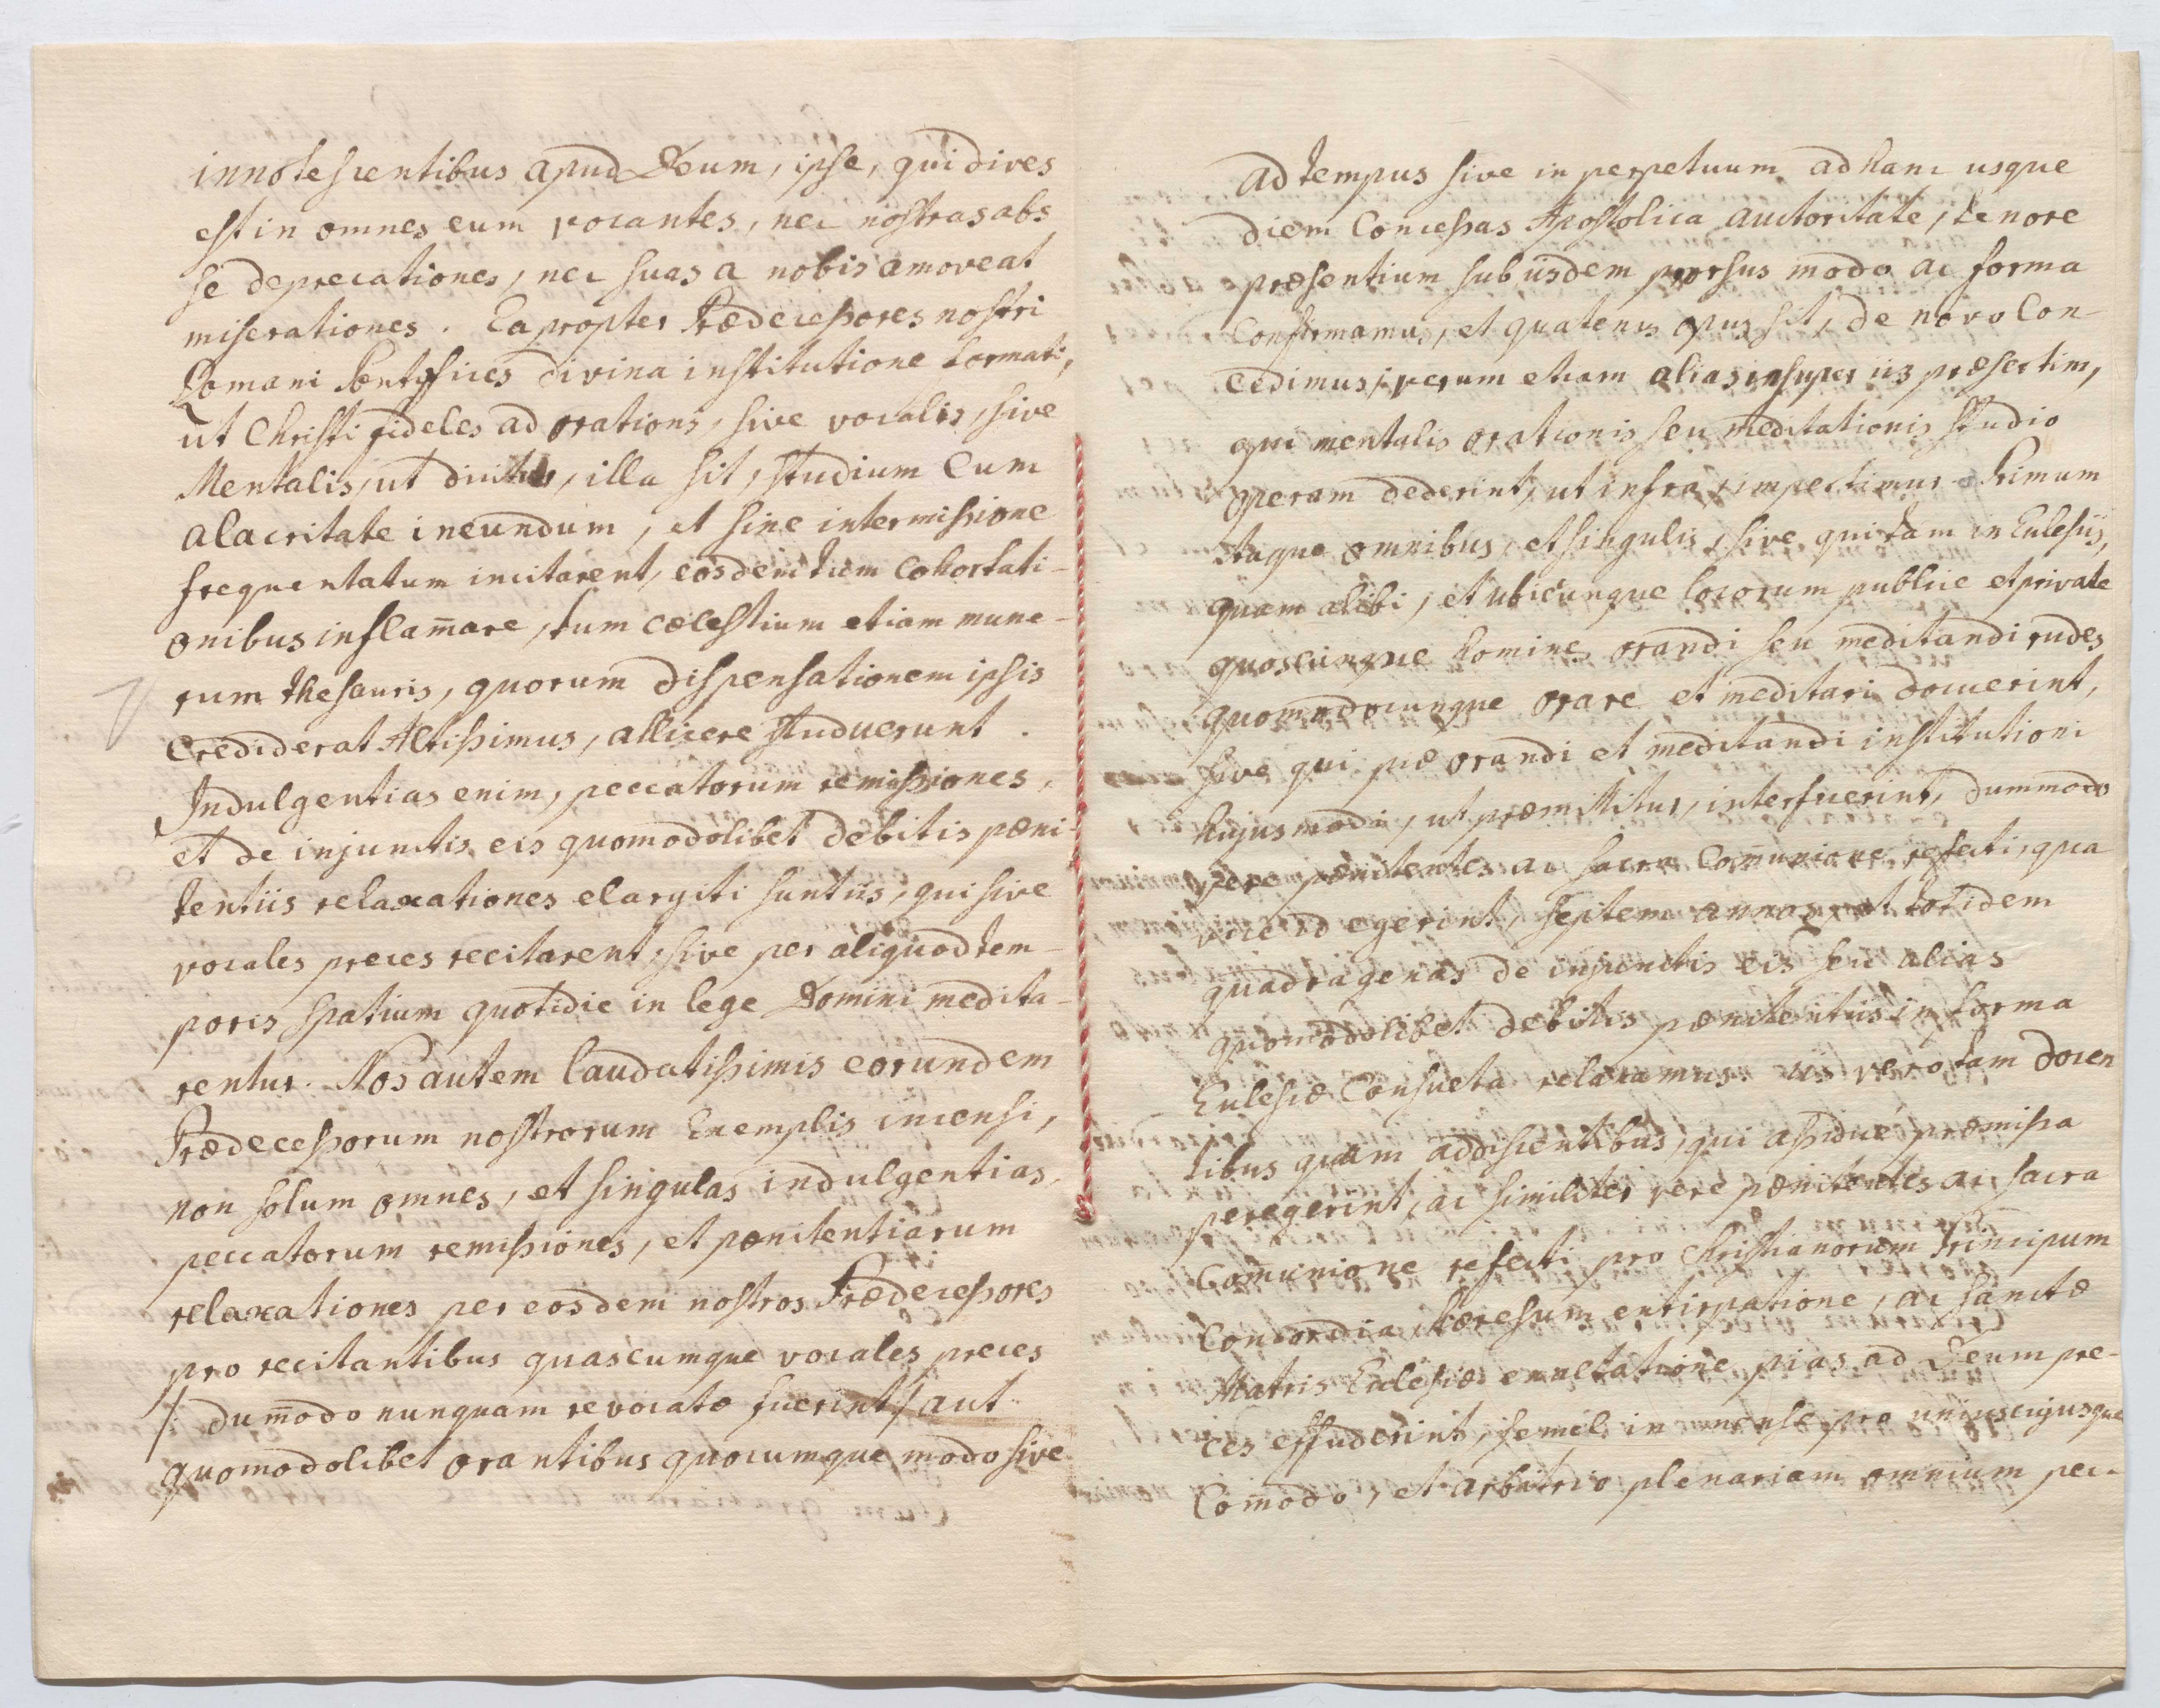 innotescentibus apud Deum, ipse, qui dives
est in omnes eum vocantes, nec nostras abs
se deprecationes, nec suas a nobis amoveat
miserationes. Eapropter Prædecessores nostri
Romani Pontifices divina institutione formati,
ut Christi fideles ad orationis, sive vocalis, sive
Mentalis, ut dicitur, illa sit, studium Cum
alacritate ineundum, et sine intermissione
frequentatum incitarent, eosdem tum Cohortati-
onibus inflam̄are, tum cœlestium etiam mune-
rum thesauris, quorum dispensationem ipsis
Crediderat Altissimus, allicere studuerunt.
Indulgentias enim, peccatorum remissiones,
et de injunctis eis quomodolibet debitis pœni-
tentiis relaxationes elargiti sunt iis, qui sive
vocales preces recitarent, sive per aliquod tem-
poris spatium quotidie in lege Domini medita-
rentur. Nos autem laudatissimis eorundem
Prædecessorum nostrorum Exemplis incensi,
non solum omnes, et singulas indulgentias,
peccatorum remissiones, et pœnitentiarum
relaxationes per eosdem nostros Prædecessores
pro recitantibus quascumque vocales preces
/: dum̄odo nunquam revocatæ fuerint / aut
quomodolibet orantibus quocumque modo sive
ad tempus sive in perpetuum ad hanc usque
diem Concessas Apostolica auctoritate, tenore
præsentium sub iisdem prorsus modo ac forma
Confirmamus, et quatenus opus sit, de novo Con-
cedimus; verum etiam alias insuper iis præsertim,
qui mentalis orationis seu meditationis studio
operam dederint, ut infra, impertimur. Primum
itaque omnibus, et singulis, sive qui tam in Ecclesiis,
quam alibi, et ubicunque locorum publice et private
quoscunque homines orandi seu meditandi rudes,
quomodocunque orare et meditari docuerint,
sive qui piæ orandi et meditandi institutioni
hujusmodi, ut præmittitur, interfuerint, dummodo
vere pœnitentes ac sacra Com̄unione refecti, qua
vice id egerint, septem annos, et totidem
quadragenas de injunctis eis seu alias
quomodolibet debitis pœnitentiis in forma
Ecclesiæ Consueta relaxamus. iis vero tam docen
tibus quam addiscentibus, qui assidue præmissa
peregerint, ac similiter vere pœnitentes ac sacra
Com̄unione refecti pro Christianorum Principum
Concordia, hæresum extirpatione, ac sanctæ
Matris Ecclesiæ exaltatione pias ad Deum pre-
ces effuderint, semel in mense pro uniuscujusque
Com̄odo, et arbitrio plenariam omnium pec-